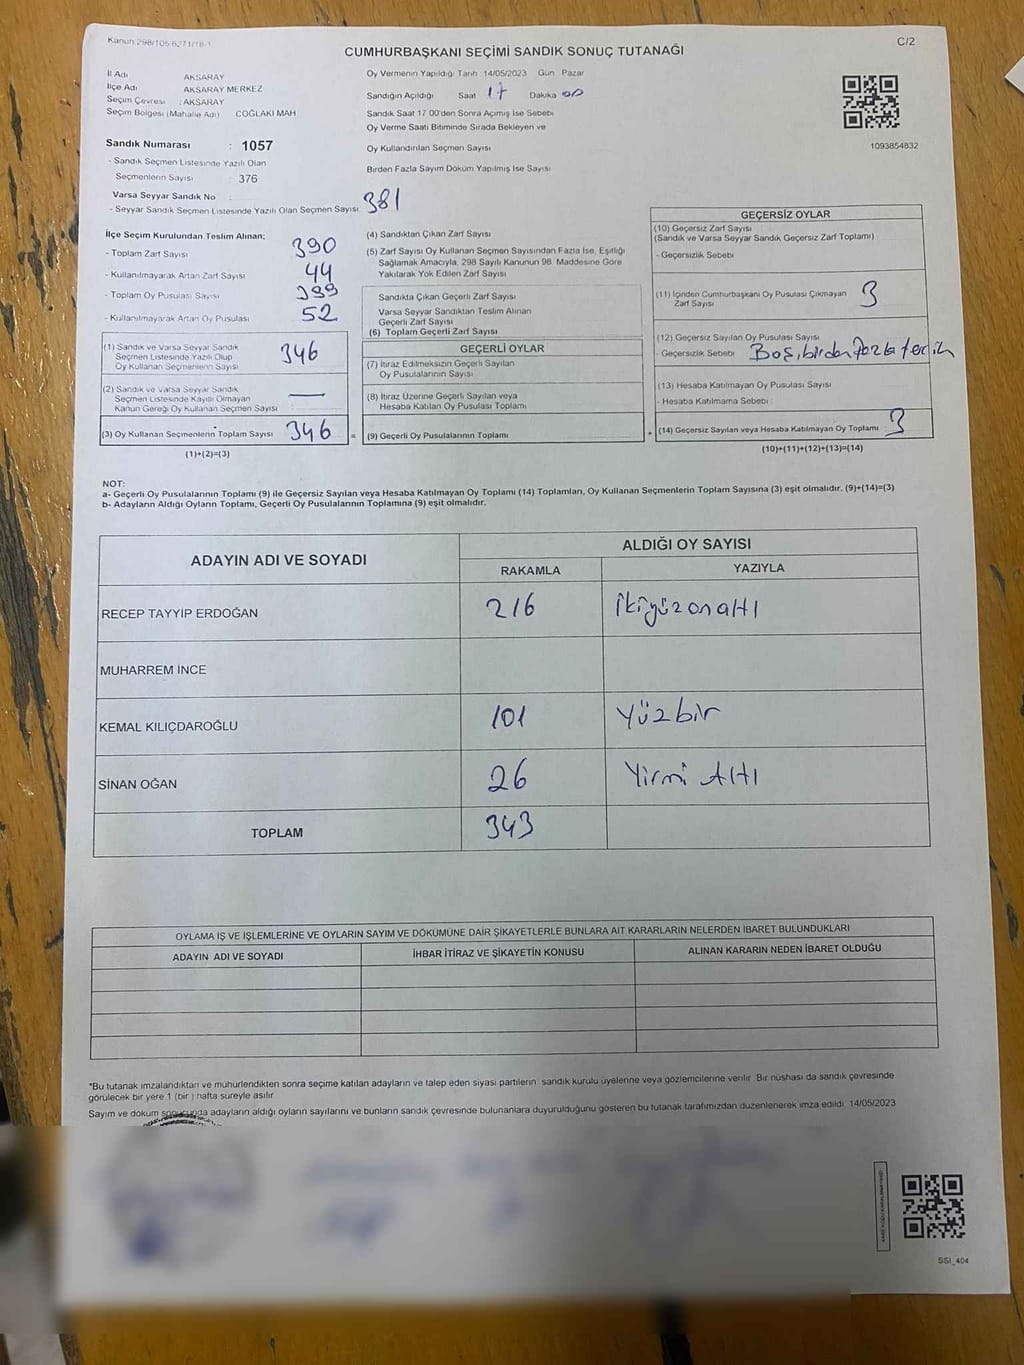 Kanun 298/105 6271/18-1
C/2
CUMHURBAŞKANI SEÇİMİ SANDIK SONUÇ TUTANAĞI
İl Adı AKSARAY
İlçe Adı AKSARAY MERKEZ
Seçim Çevresi : AKSARAY
Seçim Bölgesi (Mahalle Adı) COĞLAKI MAH
Sandık Numarası : 1057
- Sandık Seçmen Listesinde Yazılı Olan
Seçmenlerin Sayısı : 376
Varsa Seyyar Sandık No
- Seyyar Sandık Seçmen Listesinde Yazılı Olan Seçmen Sayısı 381
Oy Vermenin Yapıldığı Tarih 14/05/2023 Gün Pazar
Sandığın Açıldığı Saat 17 Dakika 00
Sandık Saat 17 00'den Sonra Açımış İse Sebebi
Oy Verme Saati Bitiminde Sırada Bekleyen ve
Oy Kullandırılan Seçmen Sayısı
Birden Fazla Sayım Döküm Yapılmış İse Sayısı
1093854832
İlçe Seçim Kurulundan Teslim Alınan;
- Toplam Zarf Sayısı 390
- Kullanılmayarak Artan Zarf Sayısı 44
- Toplam Oy Pusulası Sayısı 399
- Kullanılmayarak Artan Oy Pusulası 52
(1) Sandık ve Varsa Seyyar Sandık
Seçmen Listesinde Yazılı Olup
Oy Kullanan Seçmenlerin Sayısı 346
(2) Sandık ve Varsa Seyyar Sandık
Seçmen Listesinde Kaydı Olmayan
Kanun Gereği Oy Kullanan Seçmen Sayısı —
(3) Oy Kullanan Seçmenlerin Toplam Sayısı 346 =
(1)+(2)=(3)
(4) Sandıktan Çıkan Zarf Sayısı
(5) Zarf Sayısı Oy Kullanan Seçmen Sayısından Fazla İse, Eşitliği
Sağlamak Amacıyla, 298 Sayılı Kanunun 98. Maddesine Göre
Yakılarak Yok Edilen Zarf Sayısı
Sandıkta Çıkan Geçerli Zarf Sayısı
Varsa Seyyar Sandıktan Teslim Alınan
Geçerli Zarf Sayısı
(6) Toplam Geçerli Zarf Sayısı
GEÇERLİ OYLAR
(7) İtiraz Edilmeksizin Geçerli Sayılan
Oy Pusulalarının Sayısı
(8) İtiraz Üzerine Geçerli Sayılan veya
Hesaba Katılan Oy Pusulası Toplamı
(9) Geçerli Oy Pusulalarının Toplamı +
GEÇERSİZ OYLAR
(10) Geçersiz Zarf Sayısı
(Sandık ve Varsa Seyyar Sandık Geçersiz Zarf Toplamı)
- Geçersizlik Sebebi
(11) İçinden Cumhurbaşkanı Oy Pusulası Çıkmayan
Zarf Sayısı 3
(12) Geçersiz Sayılan Oy Pusulası Sayısı
- Geçersizlik Sebebi Boş, birden fazla tercih
(13) Hesaba Katılmayan Oy Pusulası Sayısı
- Hesaba Katılmama Sebebi
(14) Geçersiz Sayılan veya Hesaba Katılmayan Oy Toplamı : 3
(10)+(11)+(12)+(13)=(14)
NOT:
a- Geçerli Oy Pusulalarının Toplamı (9) ile Geçersiz Sayılan veya Hesaba Katılmayan Oy Toplamı (14) Toplamları, Oy Kullanan Seçmenlerin Toplam Sayısına (3) eşit olmalıdır. (9)+(14)=(3)
b- Adayların Aldığı Oyların Toplamı, Geçerli Oy Pusulalarının Toplamına (9) eşit olmalıdır.
ADAYIN ADI VE SOYADI ALDIĞI OY SAYISI
RAKAMLA YAZIYLA
RECEP TAYYİP ERDOĞAN 216 İkiyüzonaltı
MUHARREM İNCE
KEMAL KILIÇDAROĞLU 101 Yüzbir
SİNAN OĞAN 26 Yirmi Altı
TOPLAM 343
OYLAMA İŞ VE İŞLEMLERİNE VE OYLARIN SAYIM VE DÖKÜMÜNE DAİR ŞİKAYETLERLE BUNLARA AİT KARARLARIN NELERDEN İBARET BULUNDUKLARI
ADAYIN ADI VE SOYADI İHBAR İTİRAZ VE ŞİKAYETİN KONUSU ALINAN KARARIN NEDEN İBARET OLDUĞU
*Bu tutanak imzalandıktan ve mühürlendikten sonra seçime katılan adayların ve talep eden siyasi partilerin sandık kurulu üyelerine veya gözlemcilerine verilir. Bir nüshası da sandık çevresinde
görülecek bir yere 1 (bir) hafta süreyle asılır
Sayım ve döküm sonucunda adayların aldığı oyların sayılarını ve bunların sandık çevresinde bulunanlara duyurulduğunu gösteren bu tutanak tarafımızdan düzenlenerek imza edildi. 14/05/2023
SSI_404